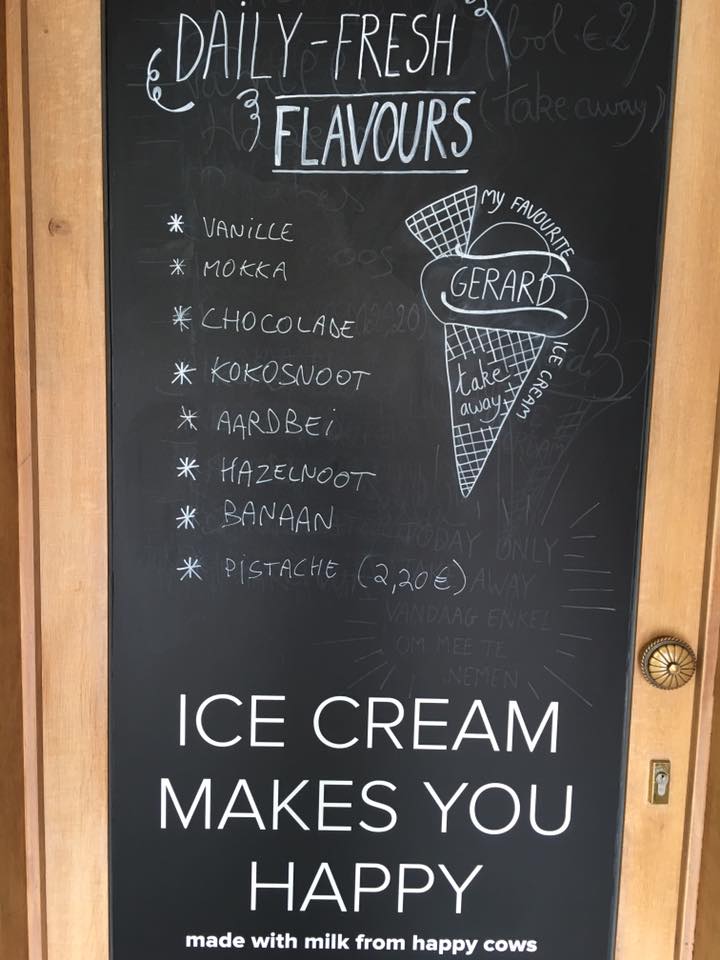 DAILY-FRESH
FLAVOURS
(bol €2)
(take away)
* VANILLE
* MOKKA
* CHOCOLADE
* KOKOSNOOT
* AARDBEI
* HAZELNOOT
* BANAAN
* PISTACHE (2,20€)
MY FAVOURITE
GERARD
ICE CREAM
take
away
TODAY ONLY
AWAY
VANDAAG ENKEL
OM MEE TE
NEMEN
ICE CREAM
MAKES YOU
HAPPY
made with milk from happy cows